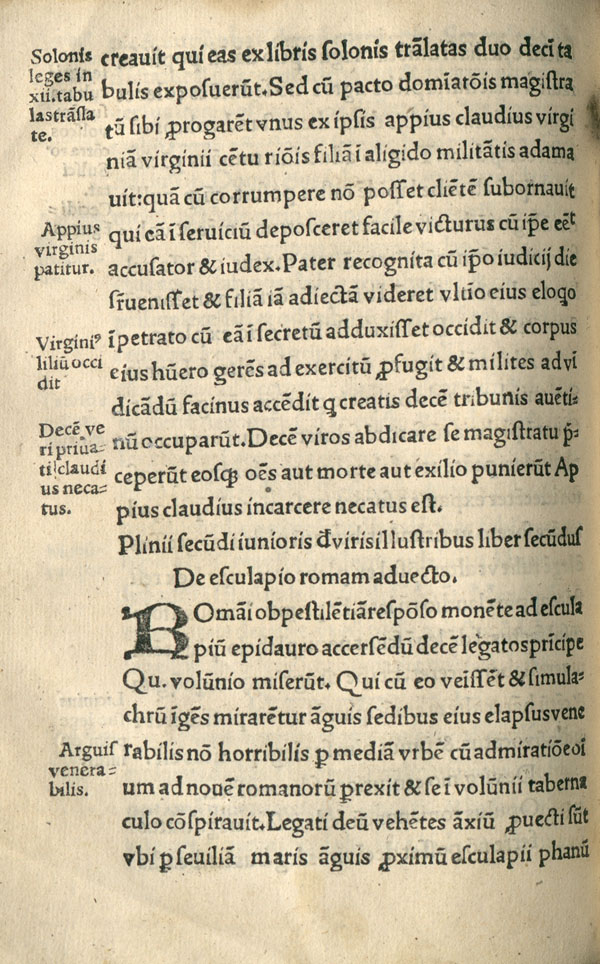 Solonis
leges in
xii.tabu
las trãsla
te.
creauit qui eas ex libris solonis trãlatas duo decĩ ta
bulis exposuerũt.Sed cũ pacto domĩatõis magistra
tũ sibi ꝓrogarẽt vnus ex ipsis appius claudius virgi
niã virginii cẽtu riõis filiã ĩ aligido militãtis adama
uit:quã cũ corrumpere nõ posset cliẽtẽ subornauit
Appius
virginis
patitur.
qui eã ĩ seruiciũ deposceret facile victurus cũ ip̃e eẽt
accusator & iudex.Pater recognita cũ ip̃o iudicij die
sr̃uenisset & filiã iã adiectã videret vltio eius eloqo
Virginiꝰ
filiũ occi
dit
ĩpetrato cũ eã ĩ secretũ adduxisset occidit & corpus
eius hũero gerẽs ad exercitũ ꝓfugit & milites ad vĩ
dicãdũ facinus accẽdit q creatis decẽ tribunis auẽti-
Decẽ ve
ri priua-
ti!claudi
us neca-
tus.
nũ occuparũt.Decẽ viros abdicare se magistratu p̃-
ceperũt eosqꝫ oẽs aut morte aut exilio punierũt Ap
pius claudius incarcere necatus est.
Plinii secũdi iunioris d̃ viris illustribus liber secũdus
De esculapio romam aduecto.
ROmãi ob pestilẽtiã respõso monẽte ad escula
piũ epidauro accersẽdũ decẽ legatos prĩcipe
Qu. volũnio miserũt. Qui cũ eo veĩssẽt & simula-
chrũ ĩgẽs mirarẽtur ãguis sedibus eius elapsus vene
Arguis
venera-
bilis.
rabilis nõ horribilis ꝑ mediã vrbẽ cũ admiratiõe oĩ
um ad nouẽ romanorũ ꝑrexit & se ĩ volũnii taberna
culo cõspirauit.Legati deũ vehẽtes ãxiũ ꝓuecti sũt
vbi ꝑ seuiliã maris ãguis ꝓximũ esculapii phanũ